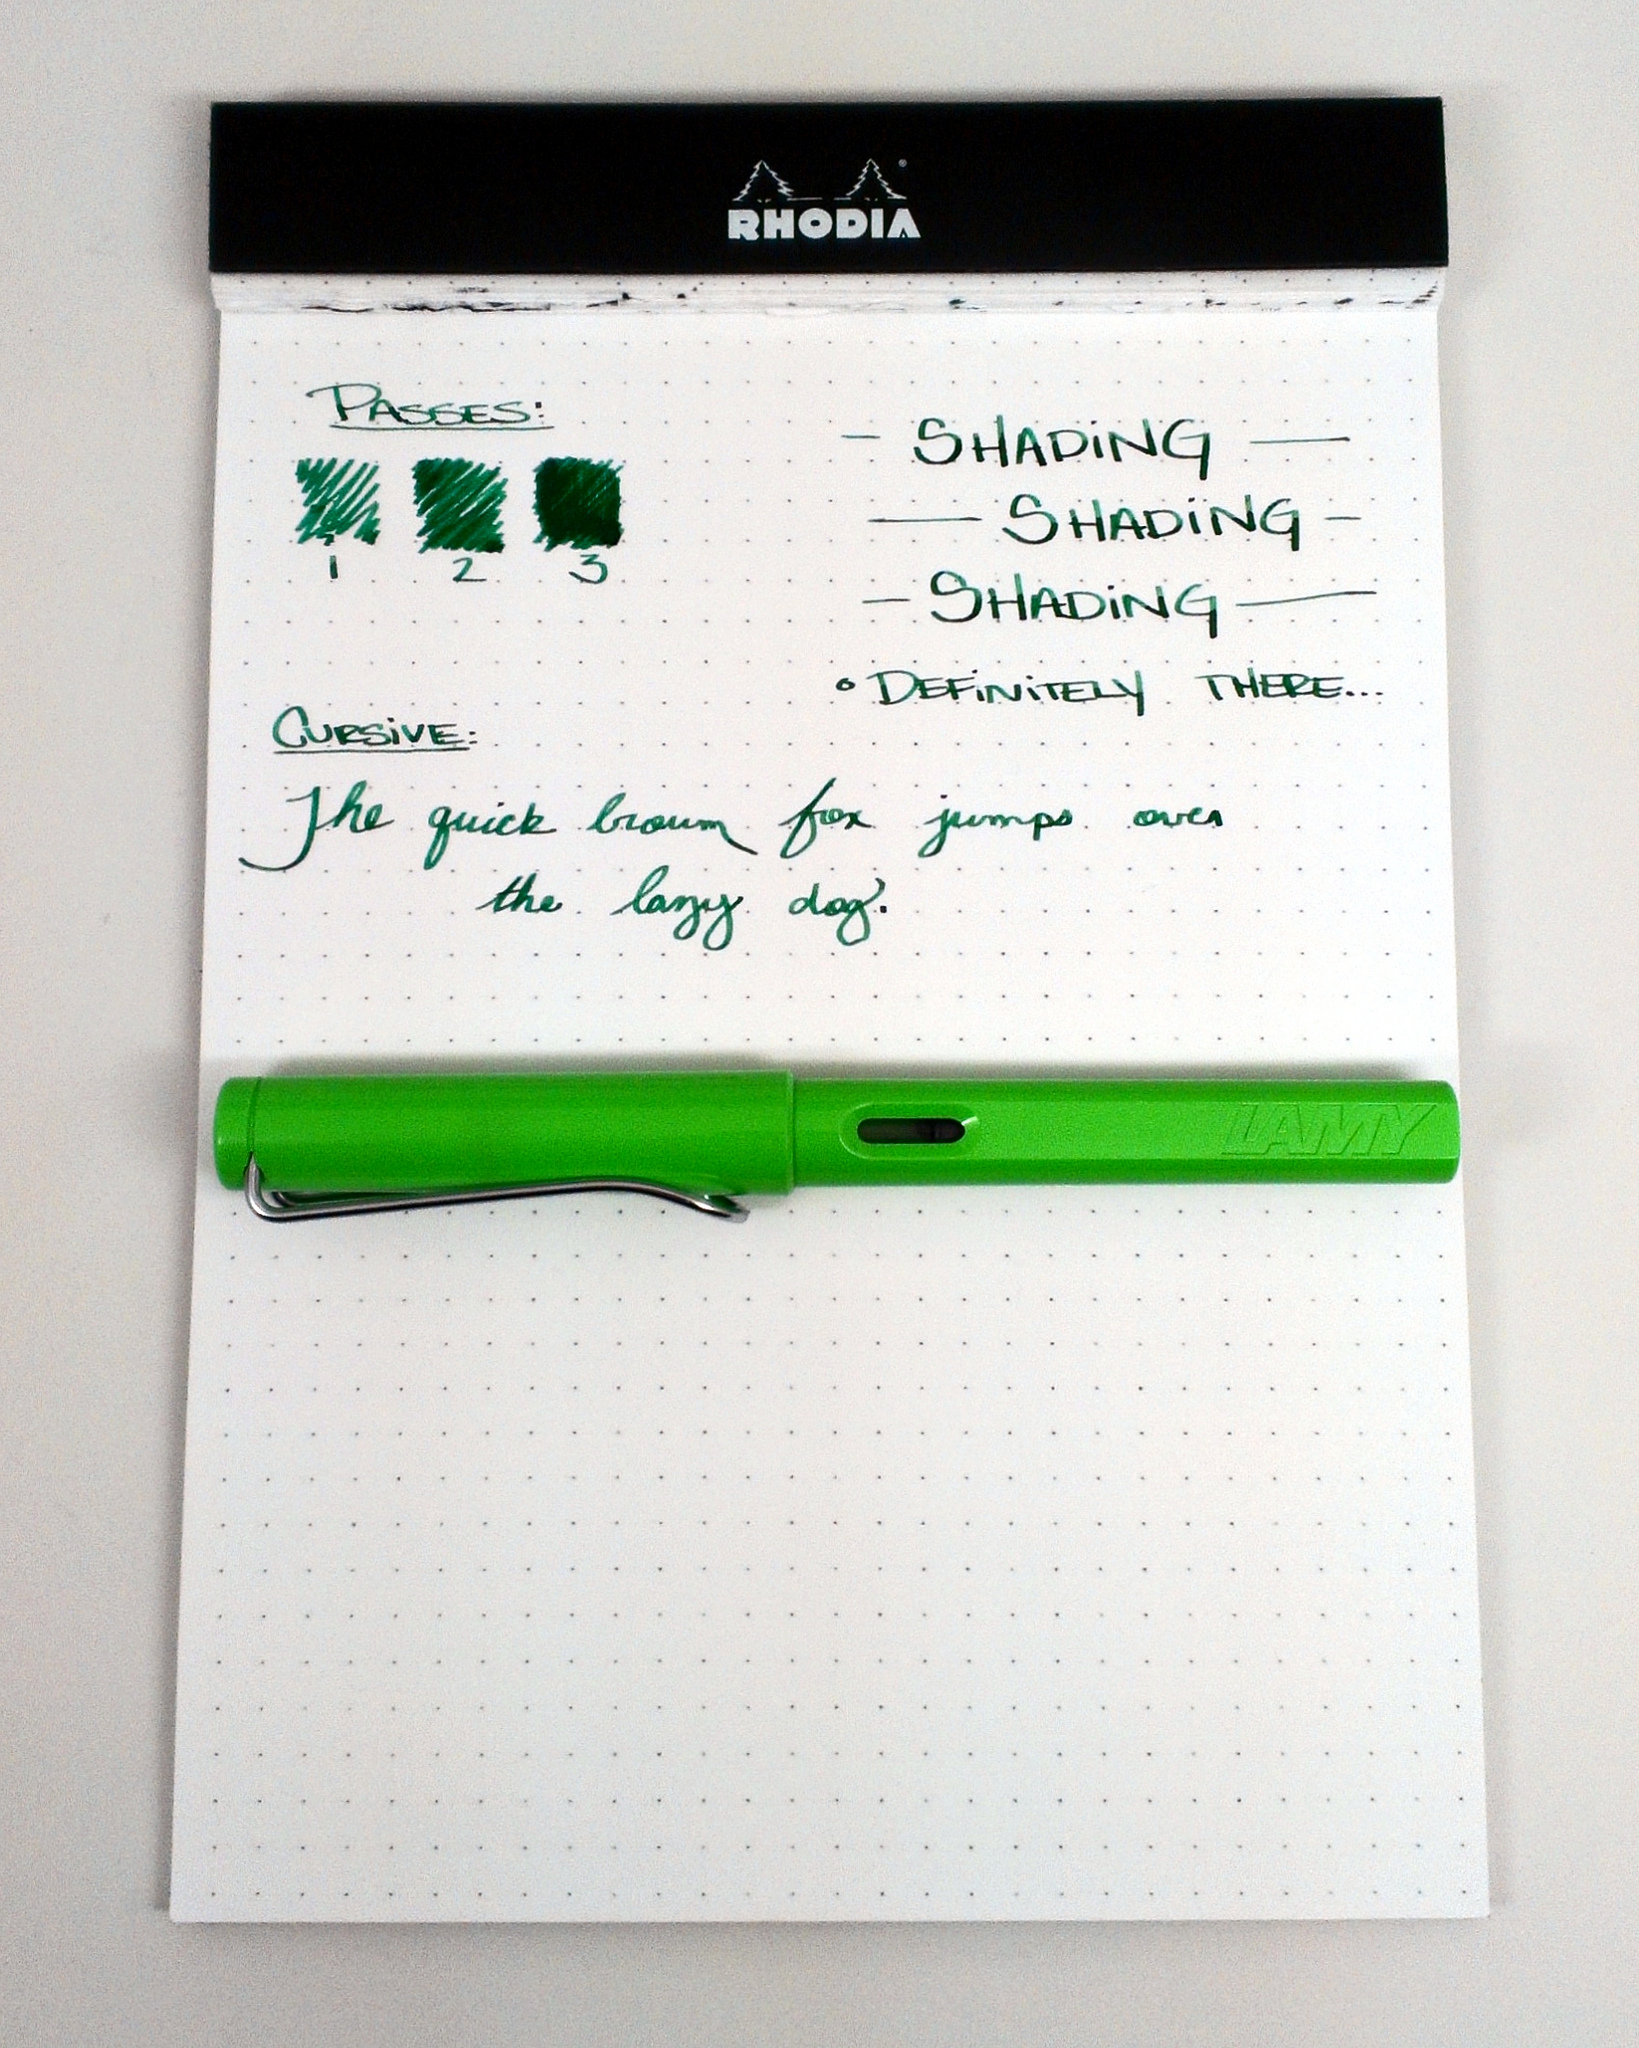 RHODIA
PASSES:
1 2 3
— SHADING —
— SHADING —
— SHADING —
• DEFINITELY THERE...
CURSIVE:
The quick brown fox jumps over
the lazy dog.
LAMY